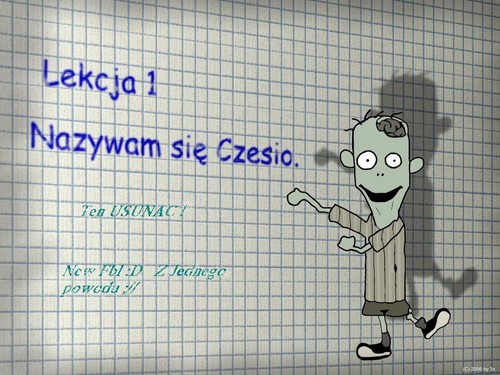 Lekcja 1
Nazywam się Czesio.
Ten USUNAC !
New Fbl :D Z Jednego
powodu ;//